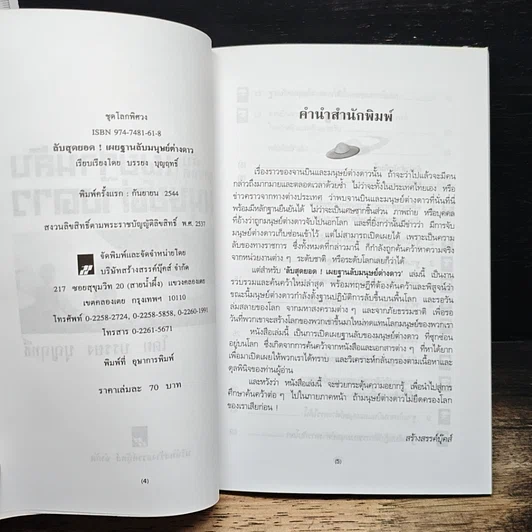 ชุดโลกพิศวง
ISBN 974-7481-61-8
ลับสุดยอด ! เผยฐานลับมนุษย์ต่างดาว
เรียบเรียงโดย บรรยง บุญฤทธิ์
พิมพ์ครั้งแรก : กันยายน 2544
สงวนลิขสิทธิ์ตามพระราชบัญญัติลิขสิทธิ์ พ.ศ. 2537
จัดพิมพ์และจัดจำหน่ายโดย
บริษัทสร้างสรรค์บุ๊คส์ จำกัด
217 ซอยสุขุมวิท 20 (สายน้ำผึ้ง) แขวงคลองเตย
เขตคลองเตย กรุงเทพฯ 10110
โทรศัพท์ 0-2258-2724, 0-2258-5858, 0-2260-1991
โทรสาร 0-2261-5671
พิมพ์ที่ อุษาการพิมพ์
ราคาเล่มละ 70 บาท
(4)
คำนำสำนักพิมพ์
เรื่องราวของจานบินและมนุษย์ต่างดาวนั้น ถ้าจะว่าไปแล้วจะมีคน
กล่าวถึงมากมายและตลอดเวลาด้วยซ้ำ ไม่ว่าจะทั้งในประเทศไทยเอง หรือ
ข่าวคราวจากทางต่างประเทศ ว่าพบจานบินและมนุษย์ต่างดาวที่นั่นที่นี่
พร้อมมีหลักฐานยืนยันได้ ไม่ว่าจะเป็นเศษซากชิ้นส่วน ภาพถ่าย หรือบุคคล
ที่อ้างว่าถูกมนุษย์ต่างดาวจับไปนอกโลก และที่สำคัญยิ่งกว่านั้นมีข่าวว่า มีการจับ
มนุษย์ต่างดาวมาเก็บซ่อนเข้าไว้ แต่ไม่สามารถเปิดเผยได้ เพราะเป็นความ
ลับของทางราชการ ซึ่งทั้งหมดที่กล่าวมานี้ ก็กำลังถูกค้นคว้าหาความจริงจาก
หน่วยงานต่าง ๆ ระดับชาติ หรือระดับโลกเลยก็ว่าได้
แต่สำหรับ "ลับสุดยอด ! เผยฐานลับมนุษย์ต่างดาว" เล่มนี้ เป็นงาน
รวบรวมและค้นคว้าใหม่ล่าสุด พร้อมทฤษฎีที่ต้องค้นคว้าและพิสูจน์ว่า
ขณะนี้มนุษย์ต่างดาวกำลังตั้งฐานปฏิบัติการลับขึ้นบนพื้นโลก และรอวัน
ล่มสลายของโลก จากมหาสงครามต่าง ๆ และจากภัยธรรมชาติ เพื่อรอ
วันที่พวกเขาจะสร้างโลกของพวกเขาขึ้นมาใหม่ทดแทนโลกมนุษย์ของพวกเรา
หนังสือเล่มนี้ เป็นการเปิดเผยถึงฐานลับของมนุษย์ต่างดาว ที่ซุกซ่อน
อยู่บนโลก ซึ่งเกิดจากการค้นคว้าจากหนังสือและเอกสารต่าง ๆ ที่หาได้ยาก
เพื่อมาเปิดเผยให้พวกเราได้ทราบ และวิเคราะห์กลั่นกรองตามเนื้อหาและ
ดุลพินิจของท่านผู้อ่าน
และหวังว่า หนังสือเล่มนี้ จะช่วยกระตุ้นความอยากรู้ เพื่อนำไปสู่การ
ศึกษาค้นคว้าต่อ ๆ ไปในภายภาคหน้า ถ้ามนุษย์ต่างดาวไม่ยึดครองโลก
ของเราเสียก่อน !
สร้างสรรค์บุ๊คส์
(5)